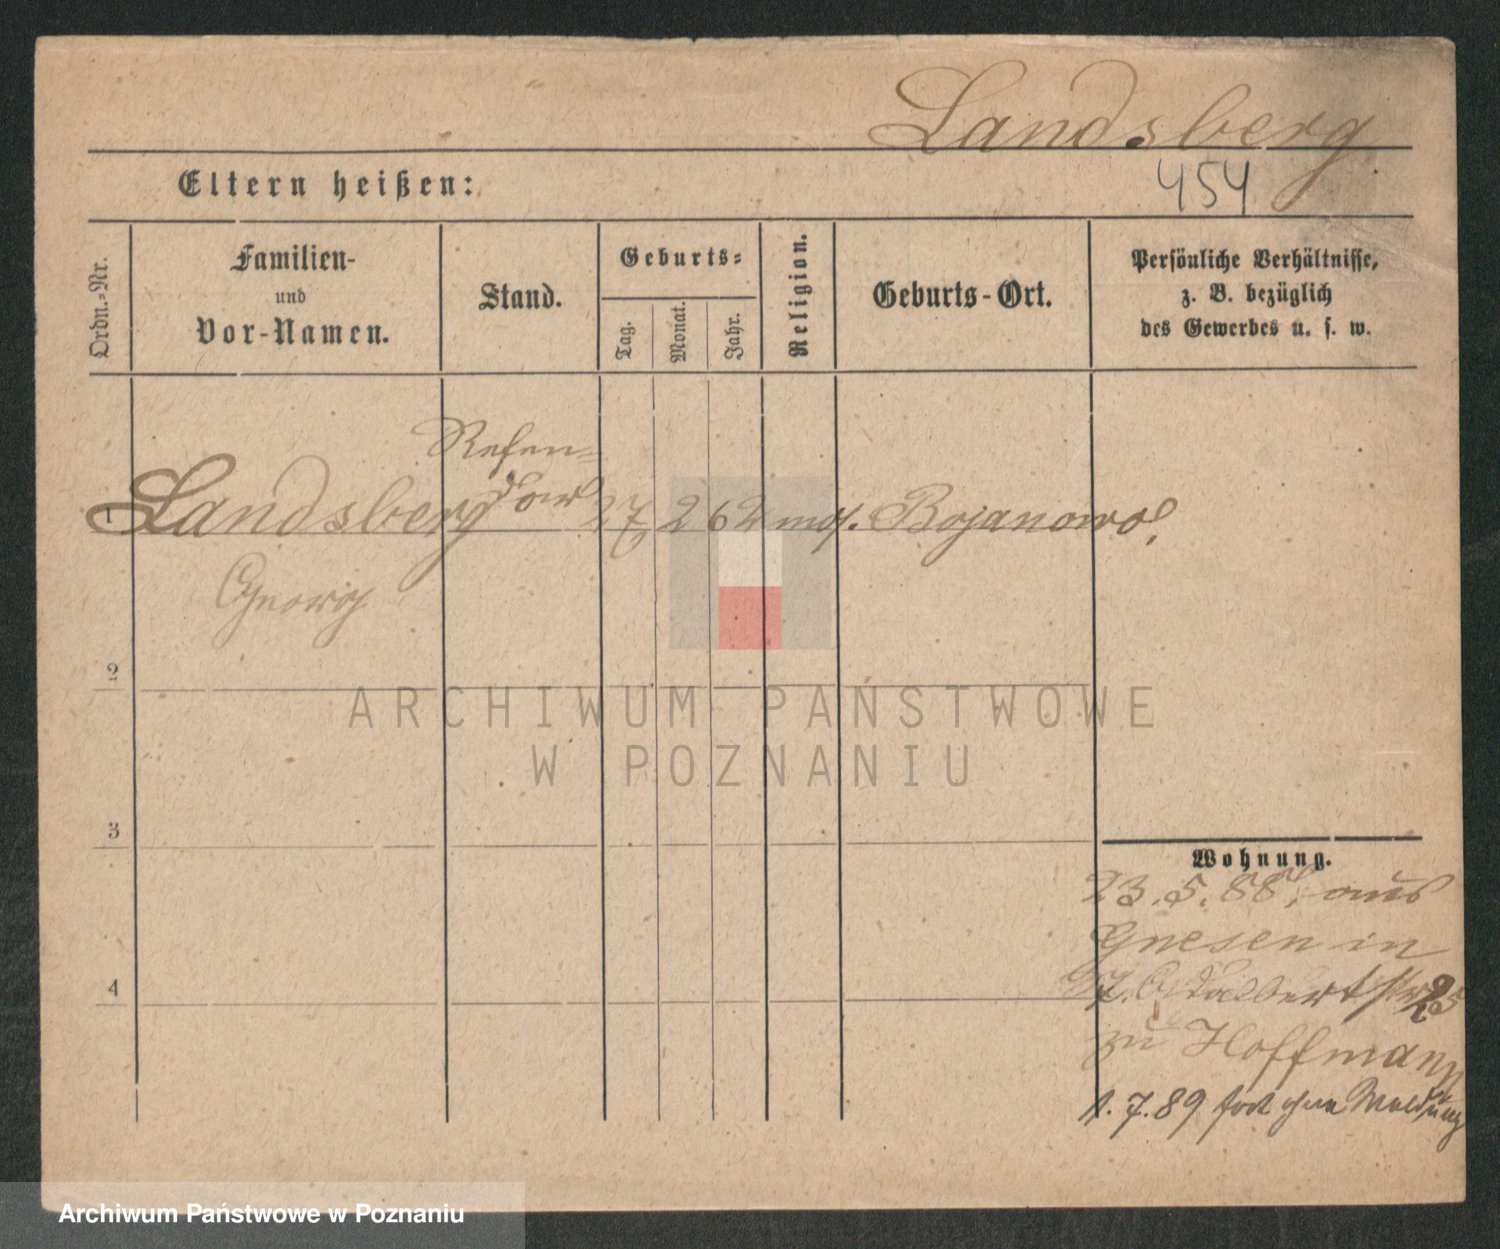 Landsberg
454
Eltern heißen:
Ordn.-Nr.
Familien-
und
Vor-Namen.
Stand.
Geburts-
Tag.
Monat.
Jahr.
Religion.
Geburts-Ort.
Persönliche Verhältnisse,
z. B. bezüglich
des Gewerbes u. s. w.
Referen-
dar
1 Landsberg 27 2 62 mos. Bojanowo
Georg
2
3
4
ARCHIWUM PAŃSTWOWE
W POZNANIU
Wohnung.
23.5.88. aus
Gnesen in
Adalbertstr 25
zu Hoffmann
1.7.89 fort ohne Meldung
Archiwum Państwowe w Poznaniu